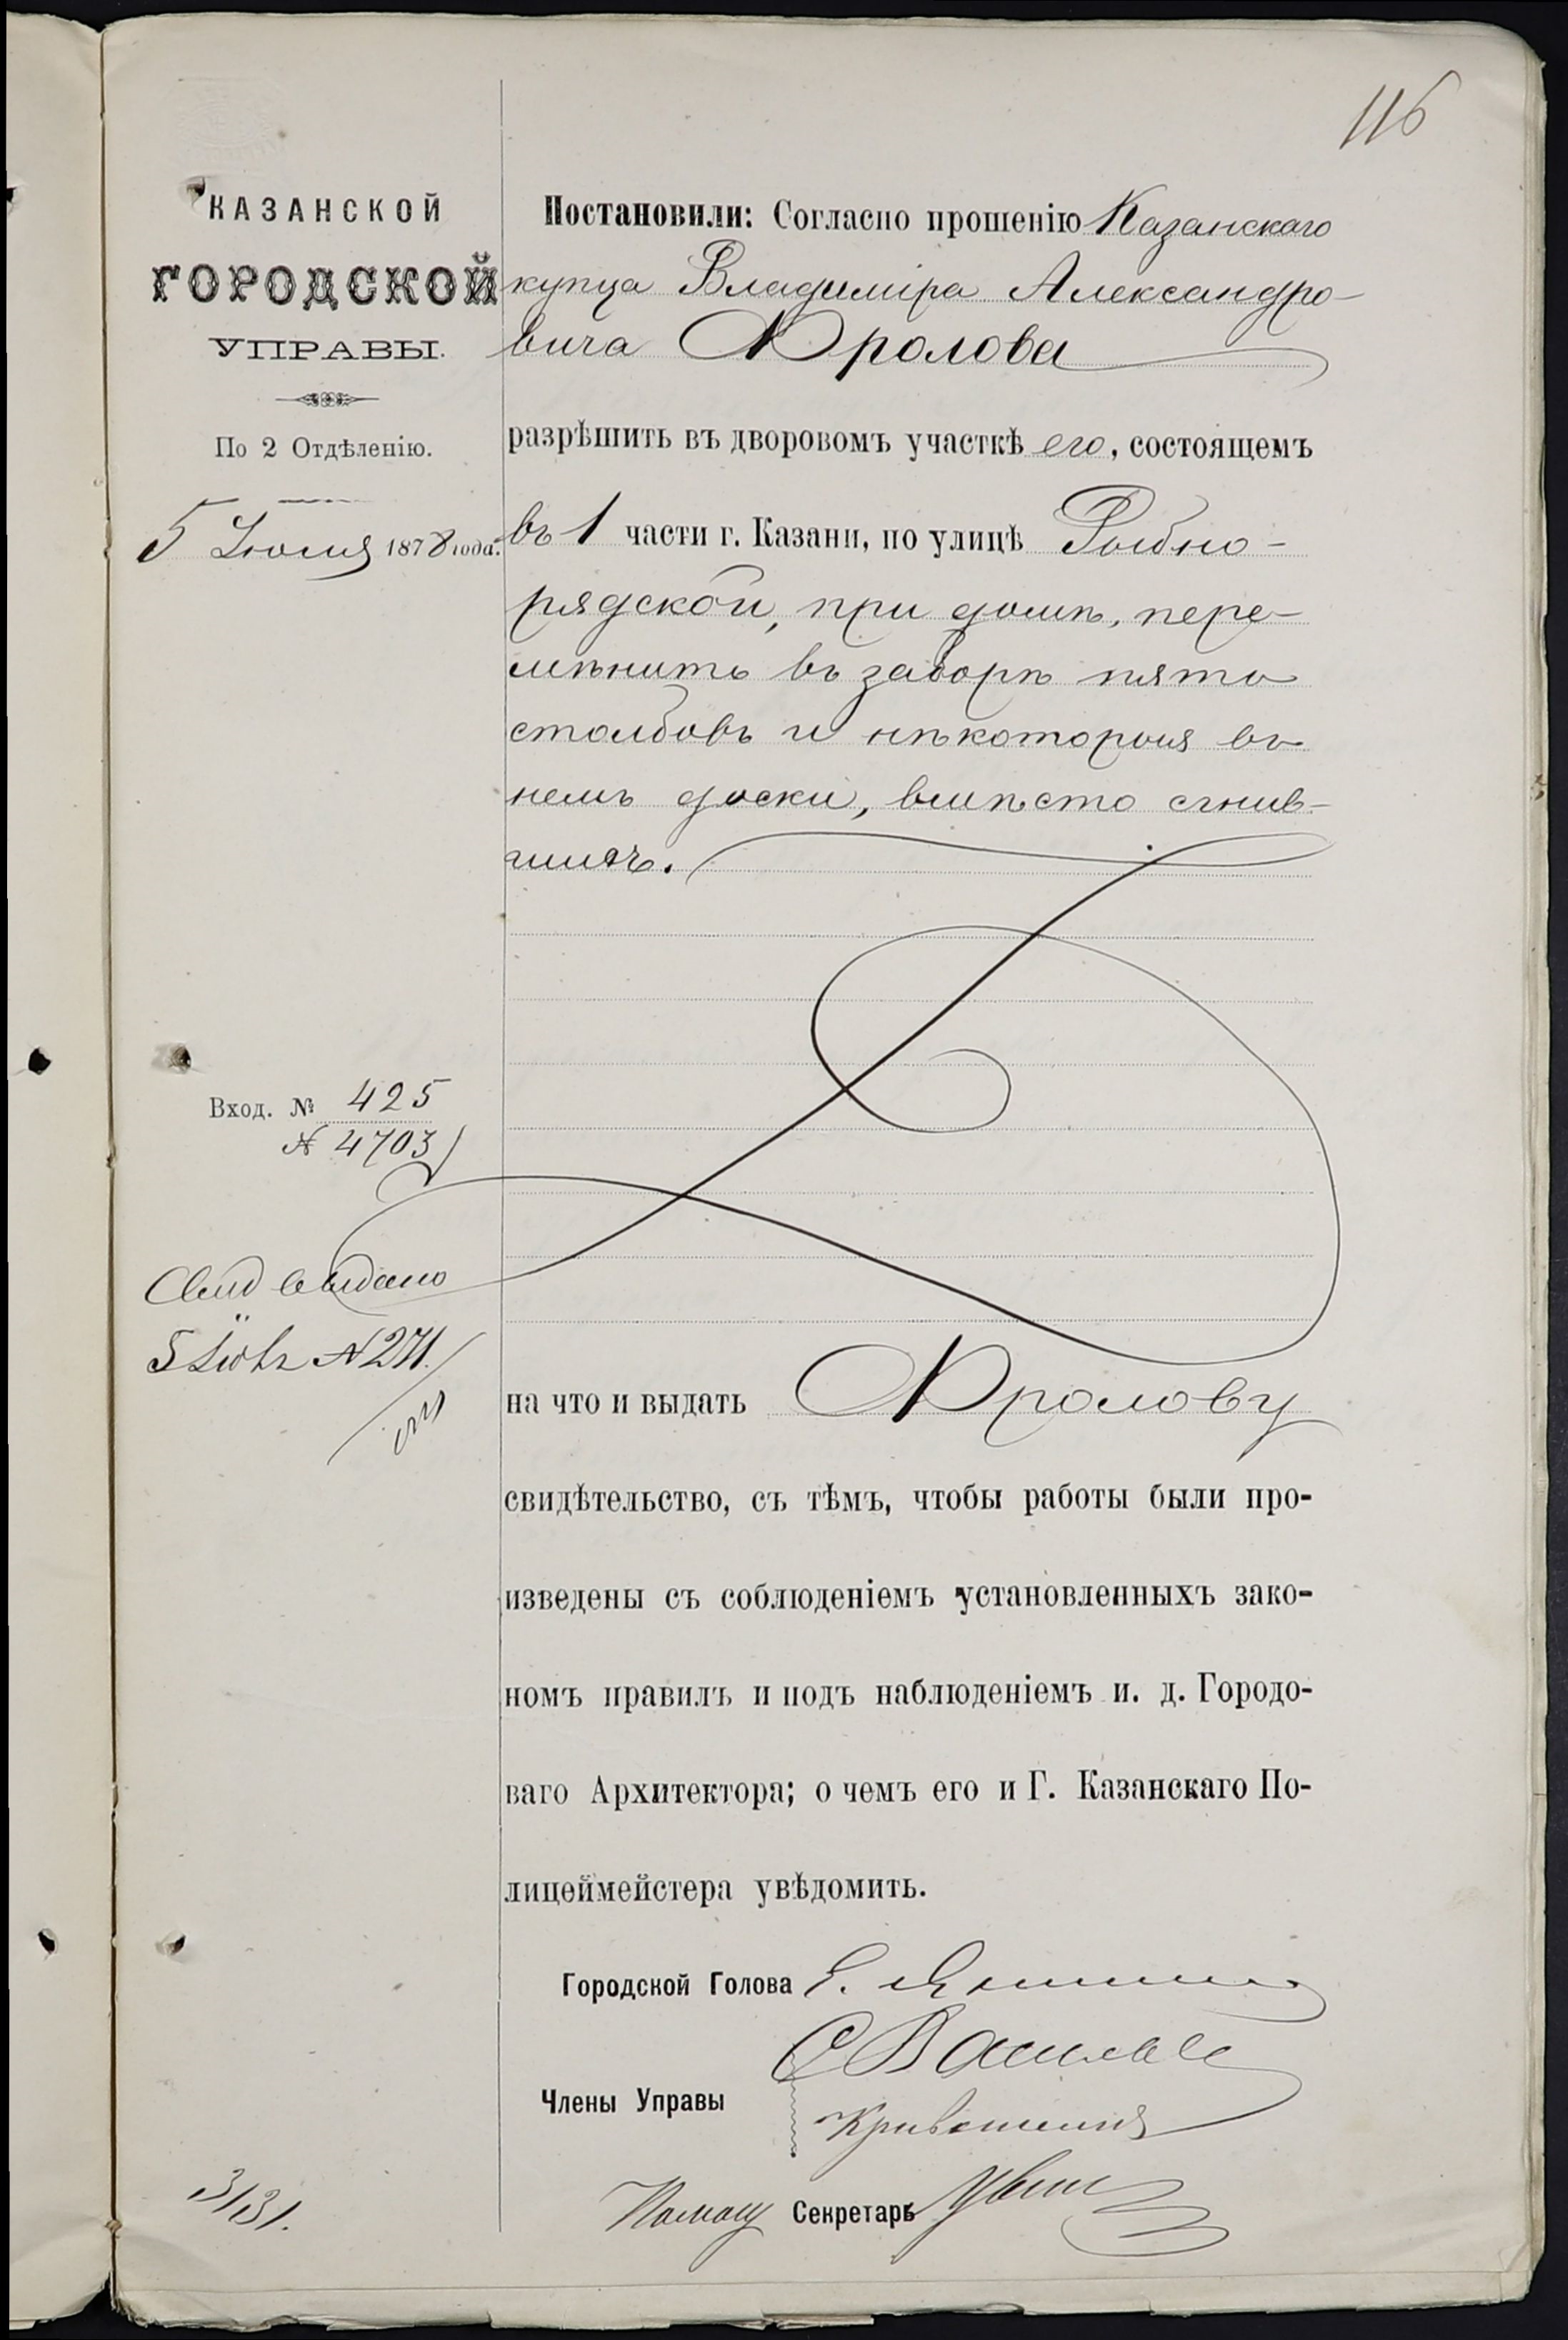 116
КАЗАНСКОЙ
ГОРОДСКОЙ
УПРАВЫ.
По 2 Отдѣленію.
5 Іюля 1878 года.
Постановили: Согласно прошенію Казанскаго
купца Владиміра Александро-
вича Фролова
разрѣшить въ дворовомъ участкѣ его, состоящемъ
въ 1 части г. Казани, по улицѣ Рыбно-
рядской, при домѣ, пере-
мѣнить въ заборѣ пять
столбовъ и нѣкоторыя въ
немъ доски, вмѣсто сгнив-
шихъ.
Вход. № 425
№ 4703
Свид выдано
5 Іюля № 271.
на что и выдать Фролову
свидѣтельство, съ тѣмъ, чтобы работы были про-
изведены съ соблюденіемъ установленныхъ зако-
номъ правилъ и подъ наблюденіемъ и. д. Городо-
ваго Архитектора; о чемъ его и Г. Казанскаго По-
лицеймейстера увѣдомить.
Городской Голова Е. Янишъ
С Васильев
Члены Управы
Кривошеинъ
Помощ Секретарь
3131.